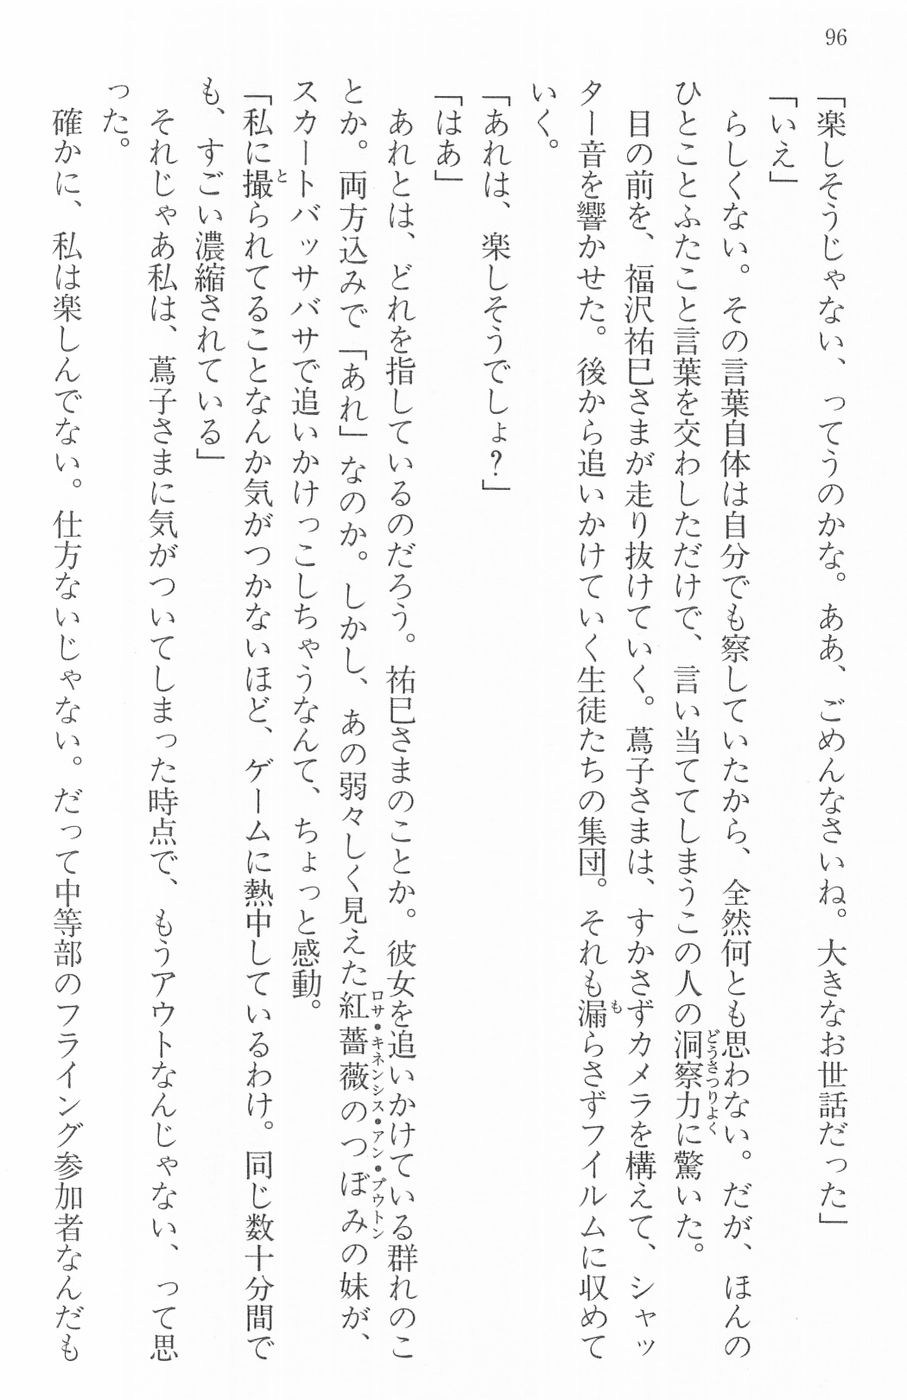 96
「楽しそうじゃない、ってうのかな。ああ、ごめんなさいね。大きなお世話だった」
「いえ」
らしくない。その言葉自体は自分でも察していたから、全然何とも思わない。だが、ほんの
ひとことふたこと言葉を交わしただけで、言い当ててしまうこの人の洞察力に驚いた。
どうさつりよく
目の前を、福沢祐巳さまが走り抜けていく。蔦子さまは、すかさずカメラを構えて、シャッ
ター音を響かせた。後から追いかけていく生徒たちの集団。それも漏らさずフイルムに収めて
も
いく。
「あれは、楽しそうでしょ?」
「はあ」
あれとは、どれを指しているのだろう。祐巳さまのことか。彼女を追いかけている群れのこ
とか。両方込みで「あれ」なのか。しかし、あの弱々しく見えた紅薔薇のつぼみの妹が、
ロサ・キネンシス・アン・ブウトン
スカートバッサバサで追いかけっこしちゃうなんて、ちょっと感動。
「私に撮られてることなんか気がつかないほど、ゲームに熱中しているわけ。同じ数十分間で
と
も、すごい濃縮されている」
それじゃあ私は、蔦子さまに気がついてしまった時点で、もうアウトなんじゃない、って思
った。
確かに、私は楽しんでない。仕方ないじゃない。だって中等部のフライング参加者なんだも